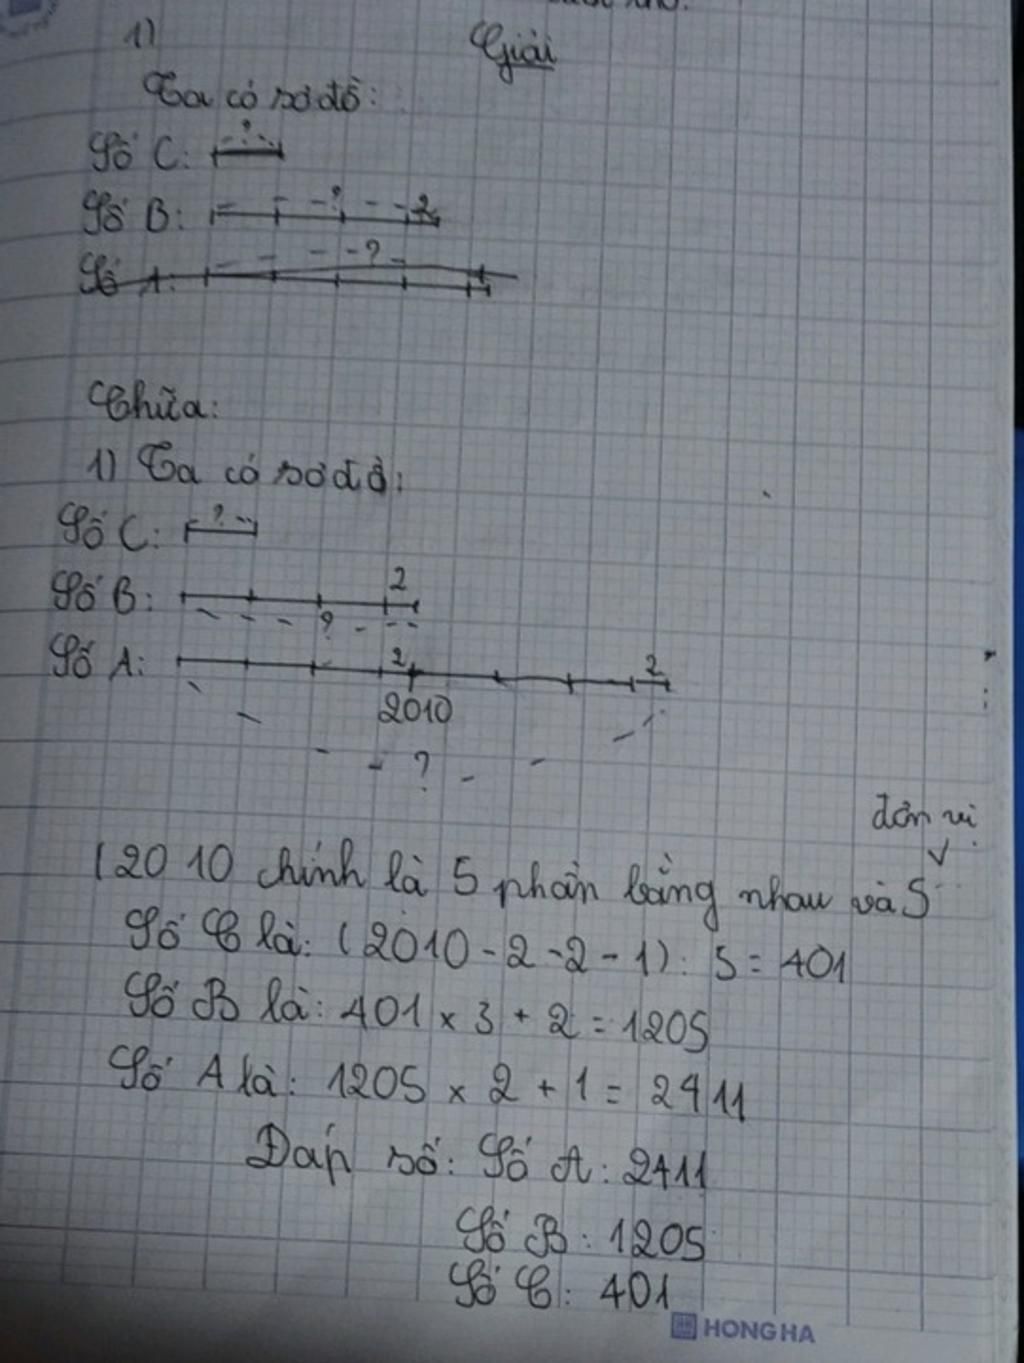 1) Giải
Ta có sơ đồ:
Số C: ?
Số B: ? 2
Số A: ?
Chữa:
1) Ta có sơ đồ:
Số C: ?
Số B: 2
?
Số A: 2 2
2010
?
đơn vị
(2010 chính là 5 phần bằng nhau và 5
Số C là: (2010 - 2 - 2 - 1) : 5 = 401
Số B là: 401 x 3 + 2 = 1205
Số A là: 1205 x 2 + 1 = 2411
Đáp số: Số A: 2411
Số B: 1205
Số C: 401
HONG HA